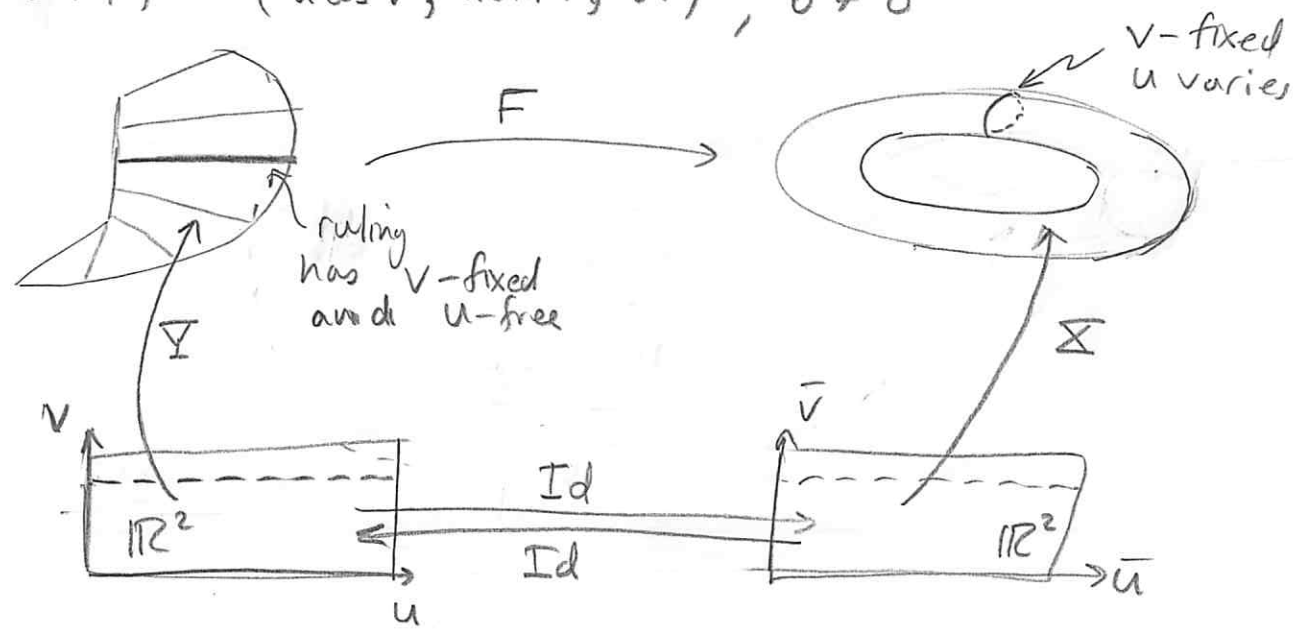 F
v-fixed
u varies
ruling
has v-fixed
and u-free
Y
X
v
v̄
Id
ℝ²
ℝ²
Id
u
ū